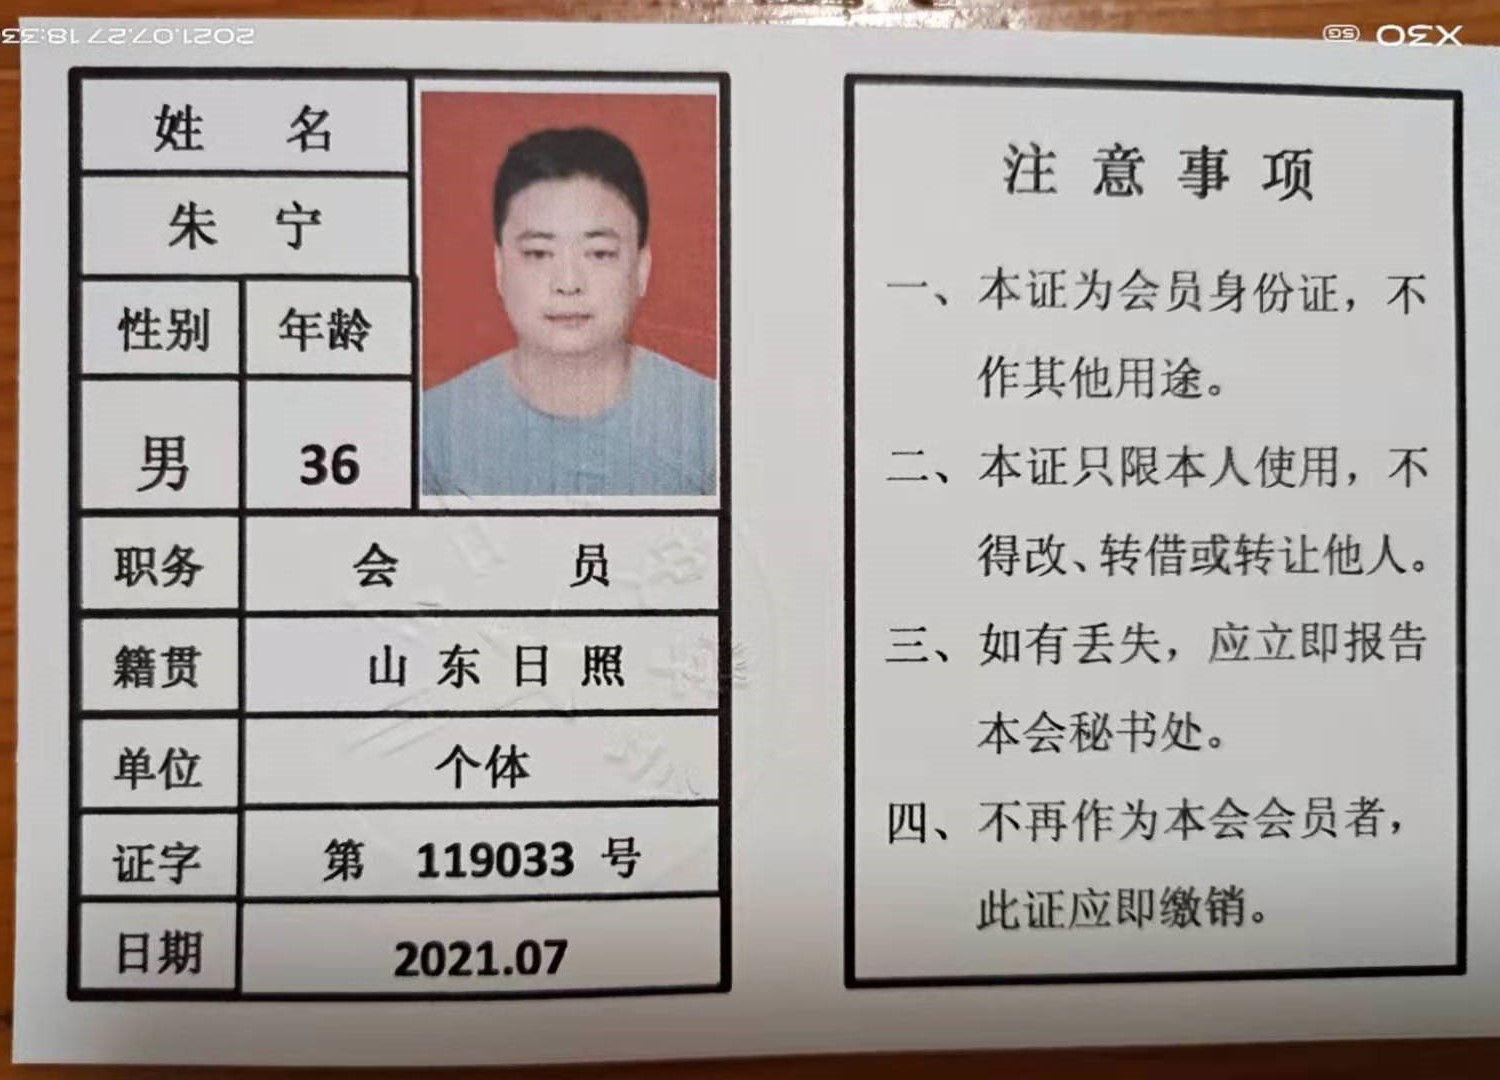 姓 名
朱 宁
性别 年龄
男 36
职务 会 员
籍贯 山 东 日 照
单位 个体
证字 第 119033 号
日期 2021.07
注 意 事 项
一、本证为会员身份证，不
作其他用途。
二、本证只限本人使用，不
得改、转借或转让他人。
三、如有丢失，应立即报告
本会秘书处。
四、不再作为本会会员者，
此证应即缴销。
X30 5G
2021.07.27 18:33